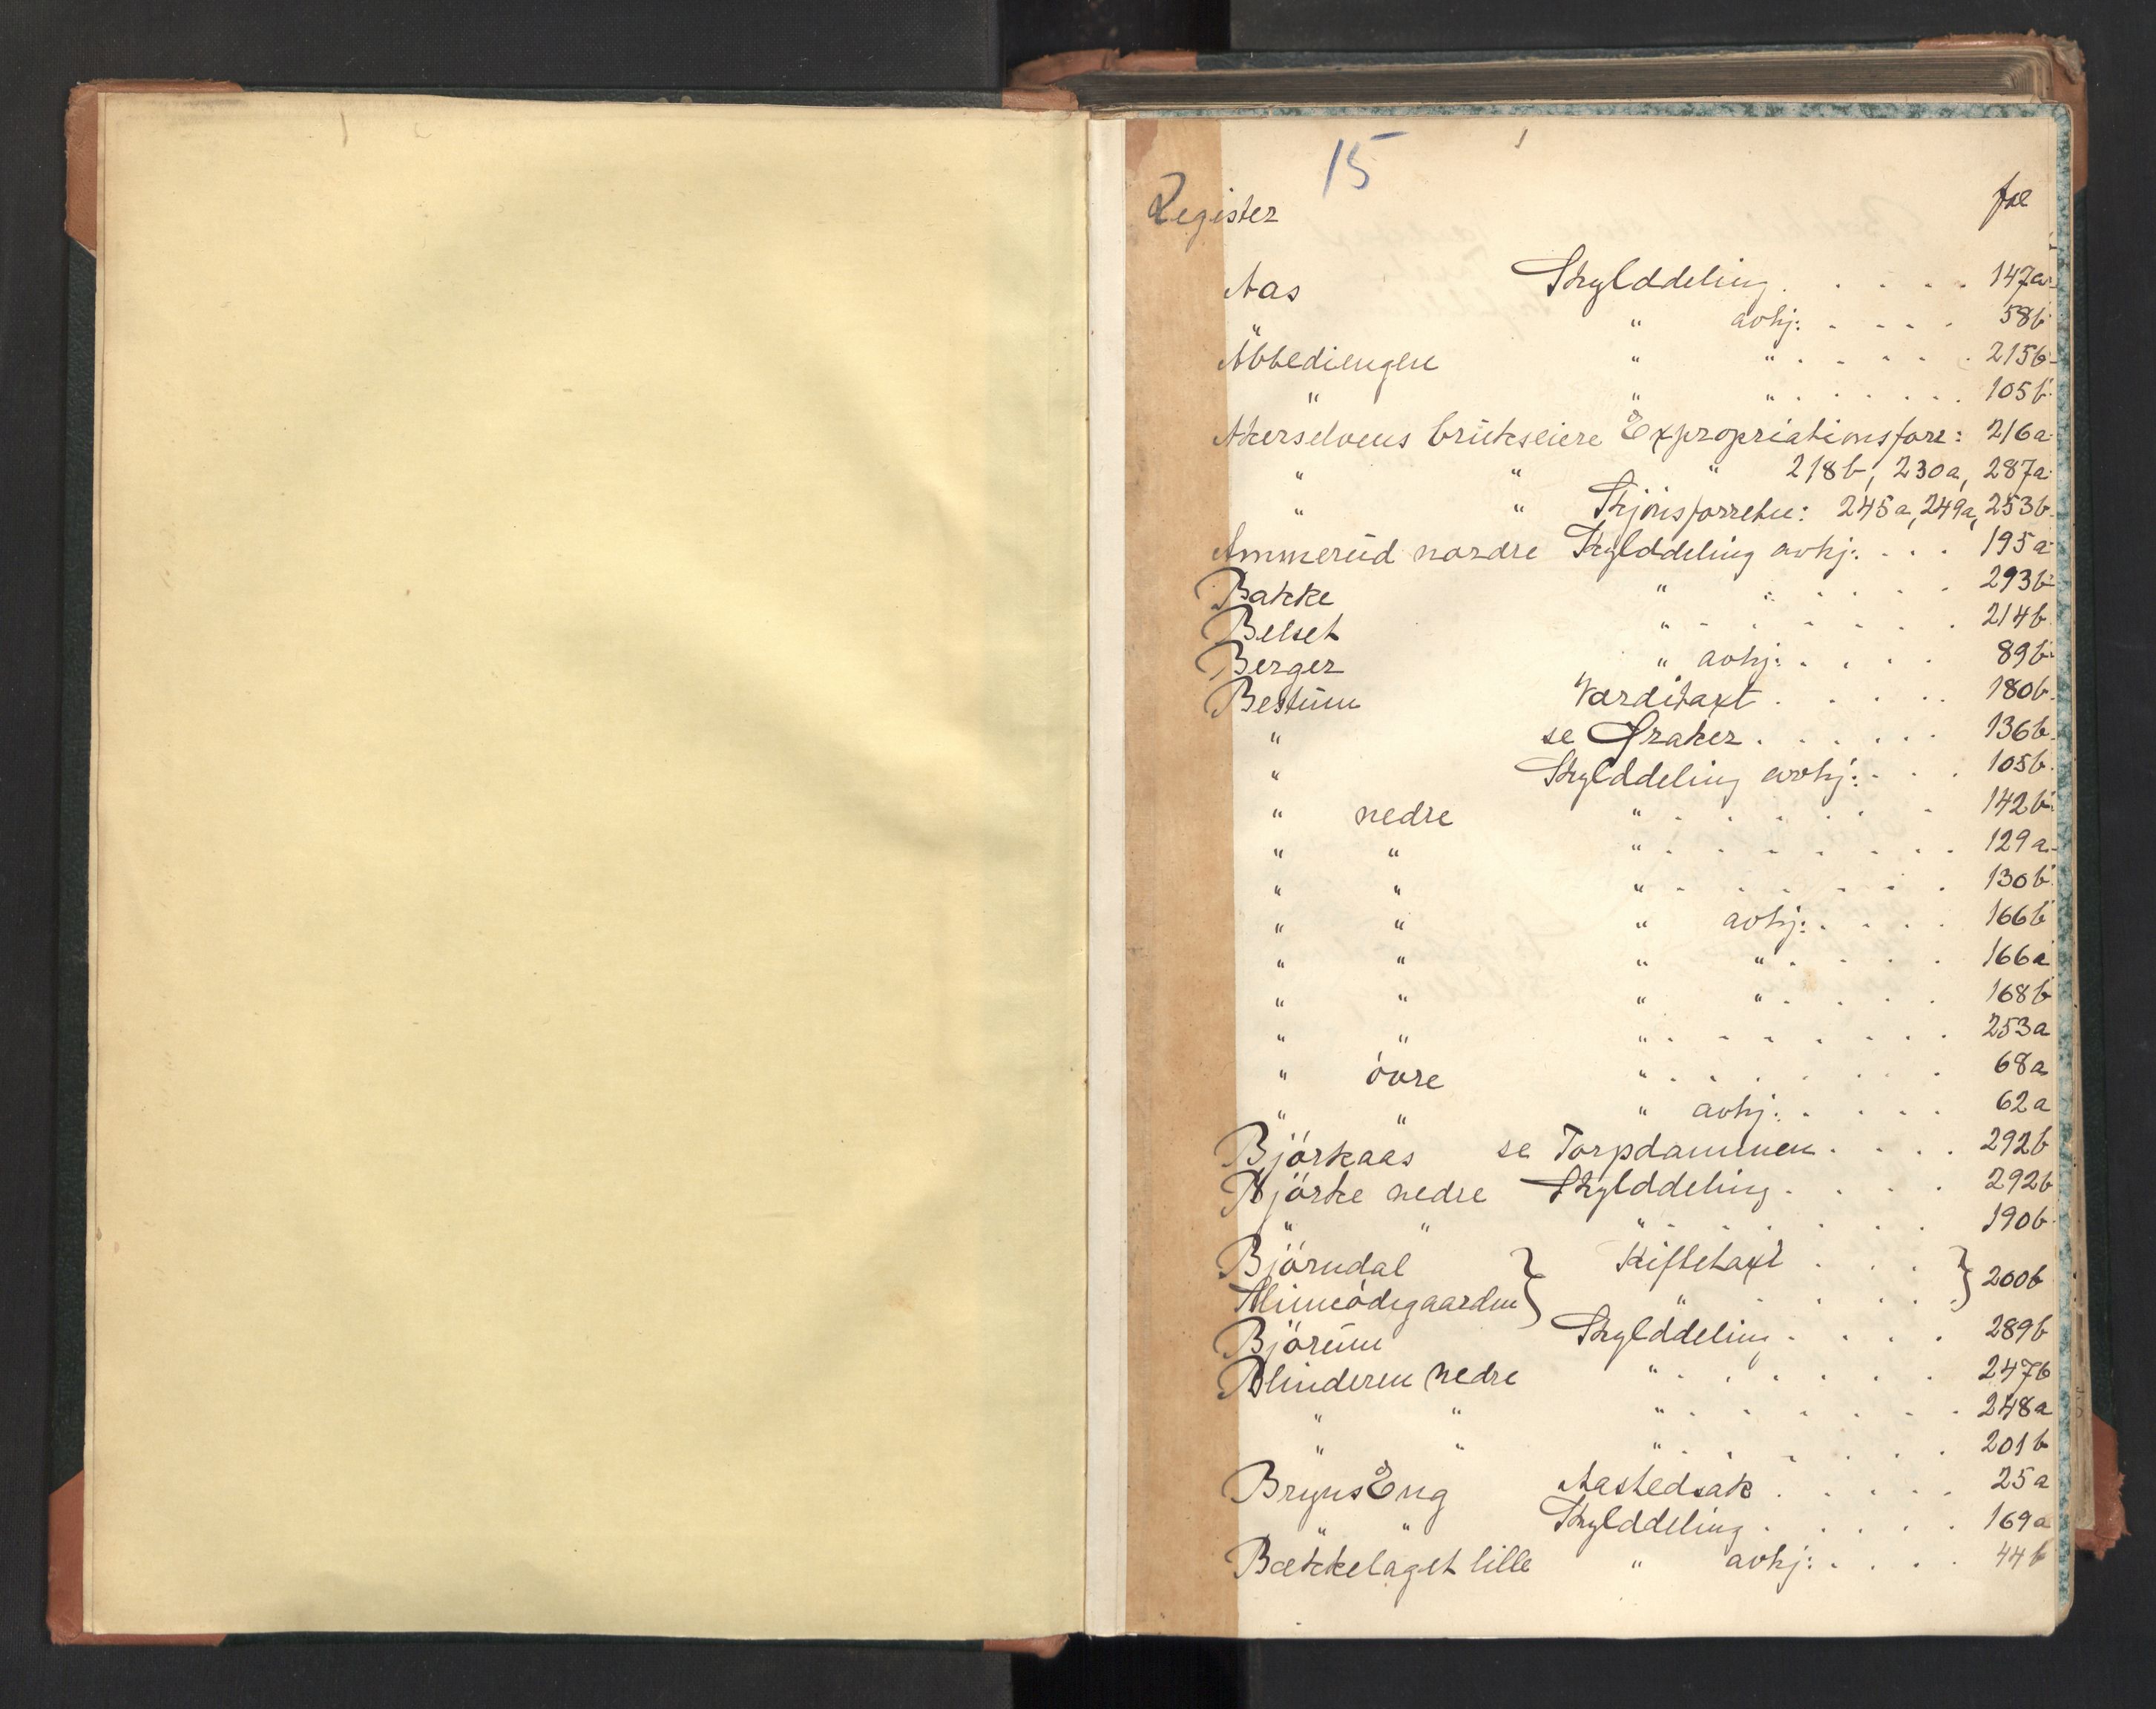 15
Register fol
Aas Skylddeling . . . . . 147a
" " avhj: . . . . 58b
Abbediengen " " . . . . . 215b
" " " . . . . . . 105b
Akerselvens brukseiere Expropriationsforr: 216a
" " " 218b, 230a, 287a
" " Skjönsforretn: 245a, 249a, 253b
Ammerud nordre Skylddeling avhj: . . . 195a
Bakke " " . . . . 293b
Belset " . . . . . . . 214b
Berger " avhj: . . . . 89b
Bestum Værditaxt . . . . . 180b
" se Øraker . . . . . . 136b
" Skylddeling avhj: . . . 105b
" nedre " . . . . . . 142b
" " " . . . . . . . 129a
" " " . . . . . . 130b
" " " avhj: . . . . 166b
" " " " . . . . . 166a
" " " " . . . . . 168b
" " " . . . . . . . 253a
" övre " . . . . . . . 68a
" " " avhj: . . . . . 62a
Björkaas se Torpdammen . . . . 292b
Bjórke nedre Skylddeling . . . . 292b
" " " . . . . . . 190b
Björndal } Skiftetaxt . . . } 200b
Slimeödegaarden } " . . . . .
Björum Skylddeling . . . . 289b
Blinderen nedre " . . . . . . 247b
" " " . . . . . . . 248a
" " " . . . . . . 201b
Bryns Eng Aastedsak . . . . . 25a
" " Skylddeling . . . . . 169a
Bækkelaget lille " avhj: . . . . 44b